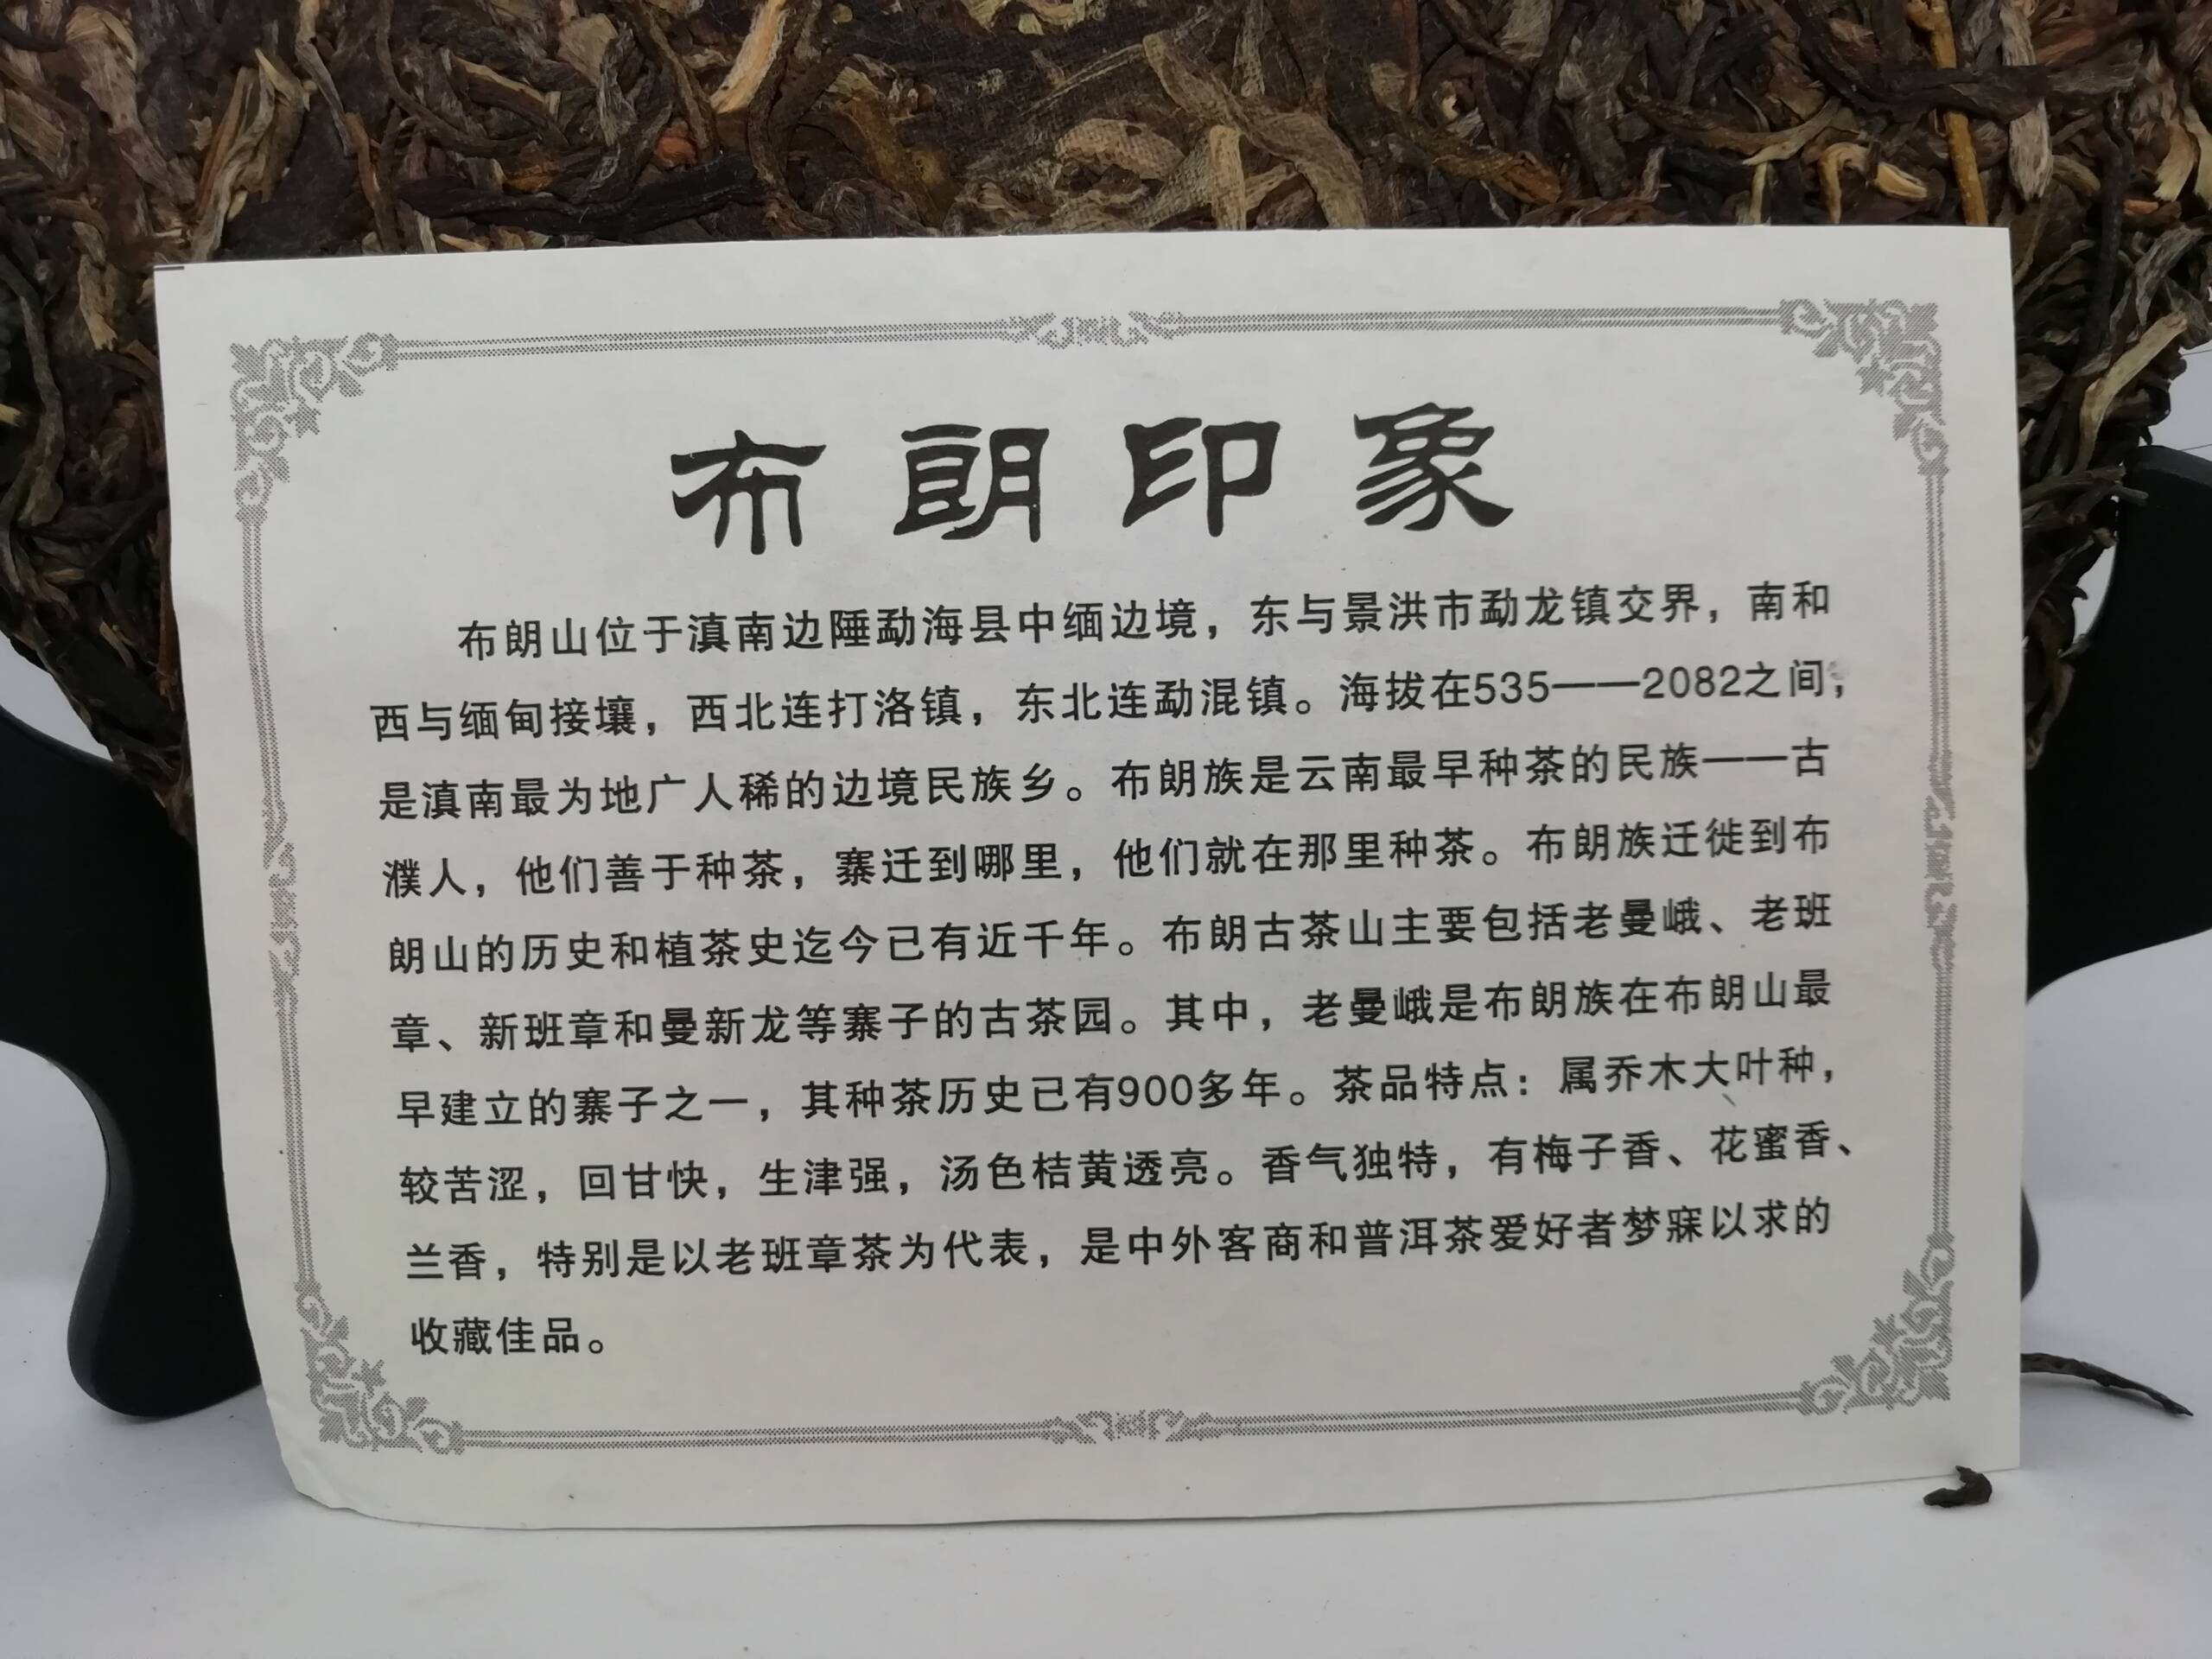 布朗印象
布朗山位于滇南边陲勐海县中缅边境，东与景洪市勐龙镇交界，南和
西与缅甸接壤，西北连打洛镇，东北连勐混镇。海拔在535——2082之间，
是滇南最为地广人稀的边境民族乡。布朗族是云南最早种茶的民族——古
濮人，他们善于种茶，寨迁到哪里，他们就在那里种茶。布朗族迁徙到布
朗山的历史和植茶史迄今已有近千年。布朗古茶山主要包括老曼峨、老班
章、新班章和曼新龙等寨子的古茶园。其中，老曼峨是布朗族在布朗山最
早建立的寨子之一，其种茶历史已有900多年。茶品特点：属乔木大叶种，
较苦涩，回甘快，生津强，汤色桔黄透亮。香气独特，有梅子香、花蜜香、
兰香，特别是以老班章茶为代表，是中外客商和普洱茶爱好者梦寐以求的
收藏佳品。